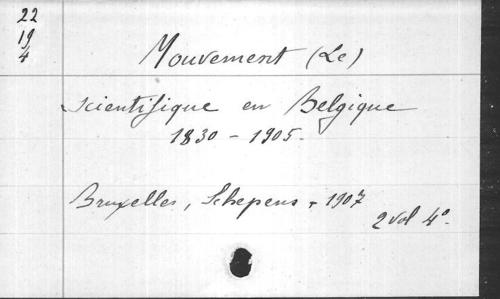 22
19
4
Mouvement (Le)
scientifique en Belgique
1830 - 1905.
Bruxelles, Schepens, 1907
2 vol 4°.